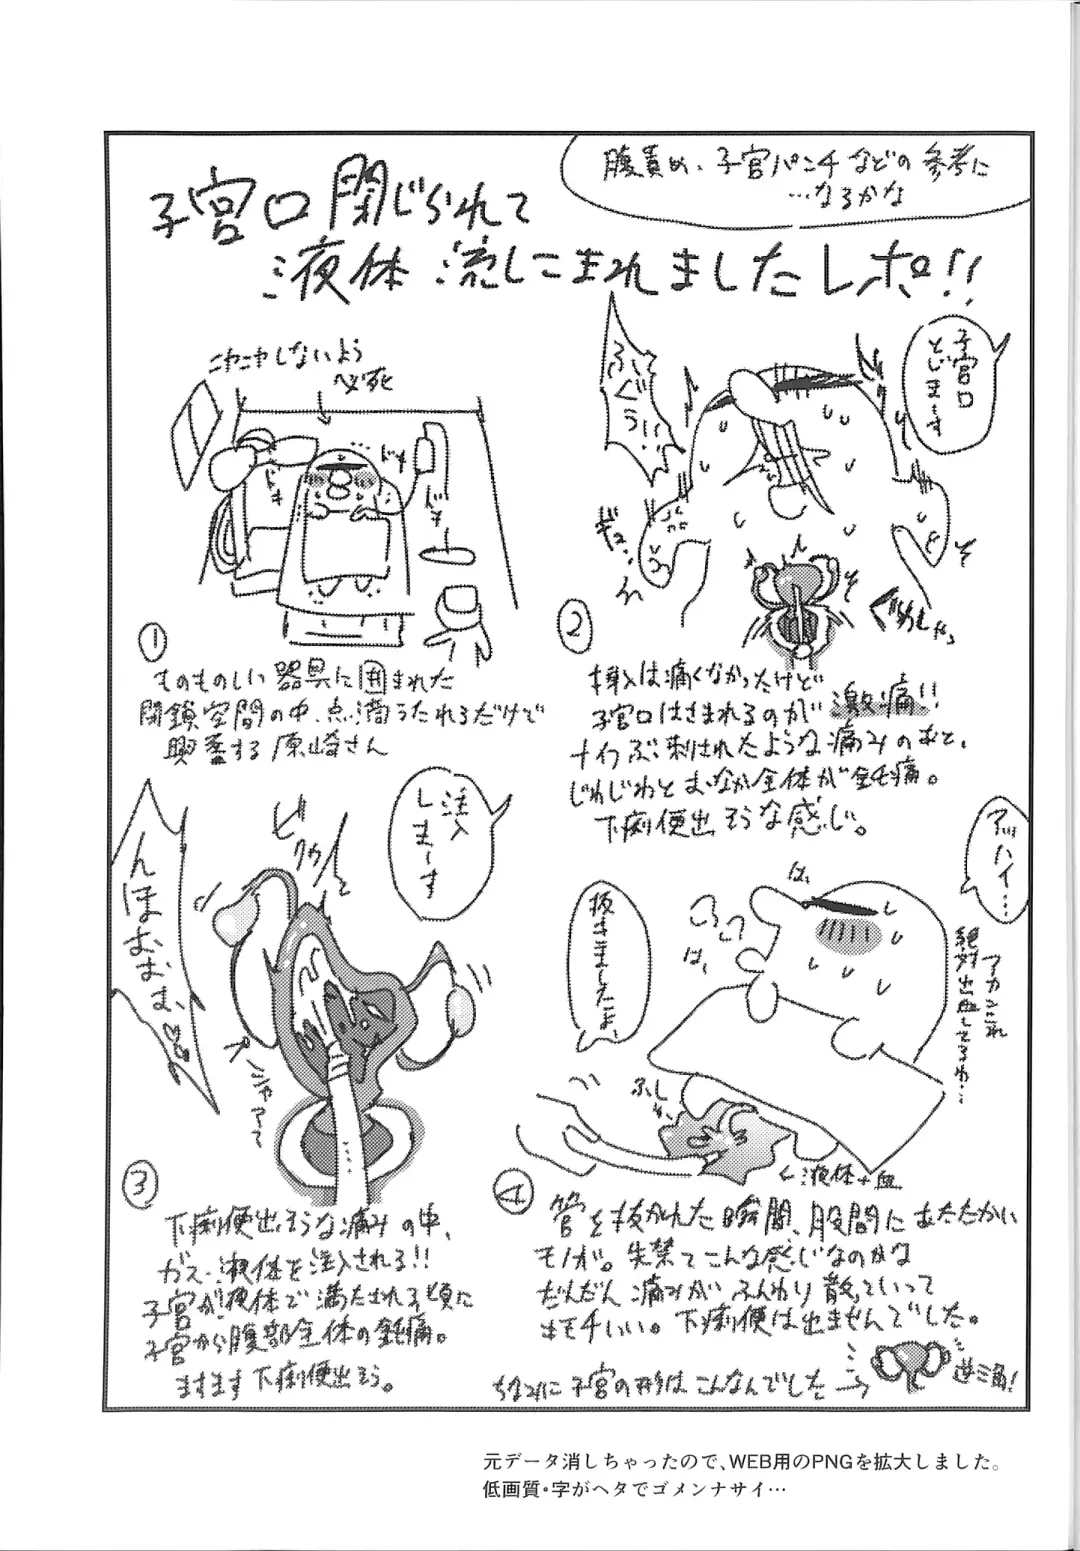 腹責め、子宮パンチなどの参考に
…なるかな
子宮口閉じられて
液体流しこまれましたレポ!!
ニヤニヤしないよう
必死
ドキ
ドキ
ドキ
①
ものものしい器具に囲まれた
閉鎖空間の中、点滴うたれるだけで
興奮する原崎さん
子宮口
とじまーす
ふんぐぅぅ!!
ギュ…
ぐめしゃっ
②
挿入は痛くなかったけど
子宮口はさまれるのが激痛!!
ナイフぶっ刺されたような痛みのあと、
じわじわとおなか全体が鈍痛。
下痢便出そうな感じ。
注入
しまーす
ビクカ
んほおぉぉ♡
③
下痢便出そうな痛みの中、
ガス・液体を注入される!!
子宮が液体で満たされる頃に
子宮から腹部全体の鈍痛。
ますます下痢便出そう。
アッハイ…
アカンこれ
絶対出血してるわ…
は、
は、
抜きましたよ、
ふしゅ
←液体+血
④
管を抜かれた瞬間、股間にあたたかい
モノが。失禁てこんな感じなのかな
だんだん痛みがふんわり散っていって
キモチいい。下痢便は出ませんでした。
ちなみに子宮の形はこんなんでした→
逆三角!
元データ消しちゃったので、WEB用のPNGを拡大しました。
低画質・字がヘタでゴメンナサイ…